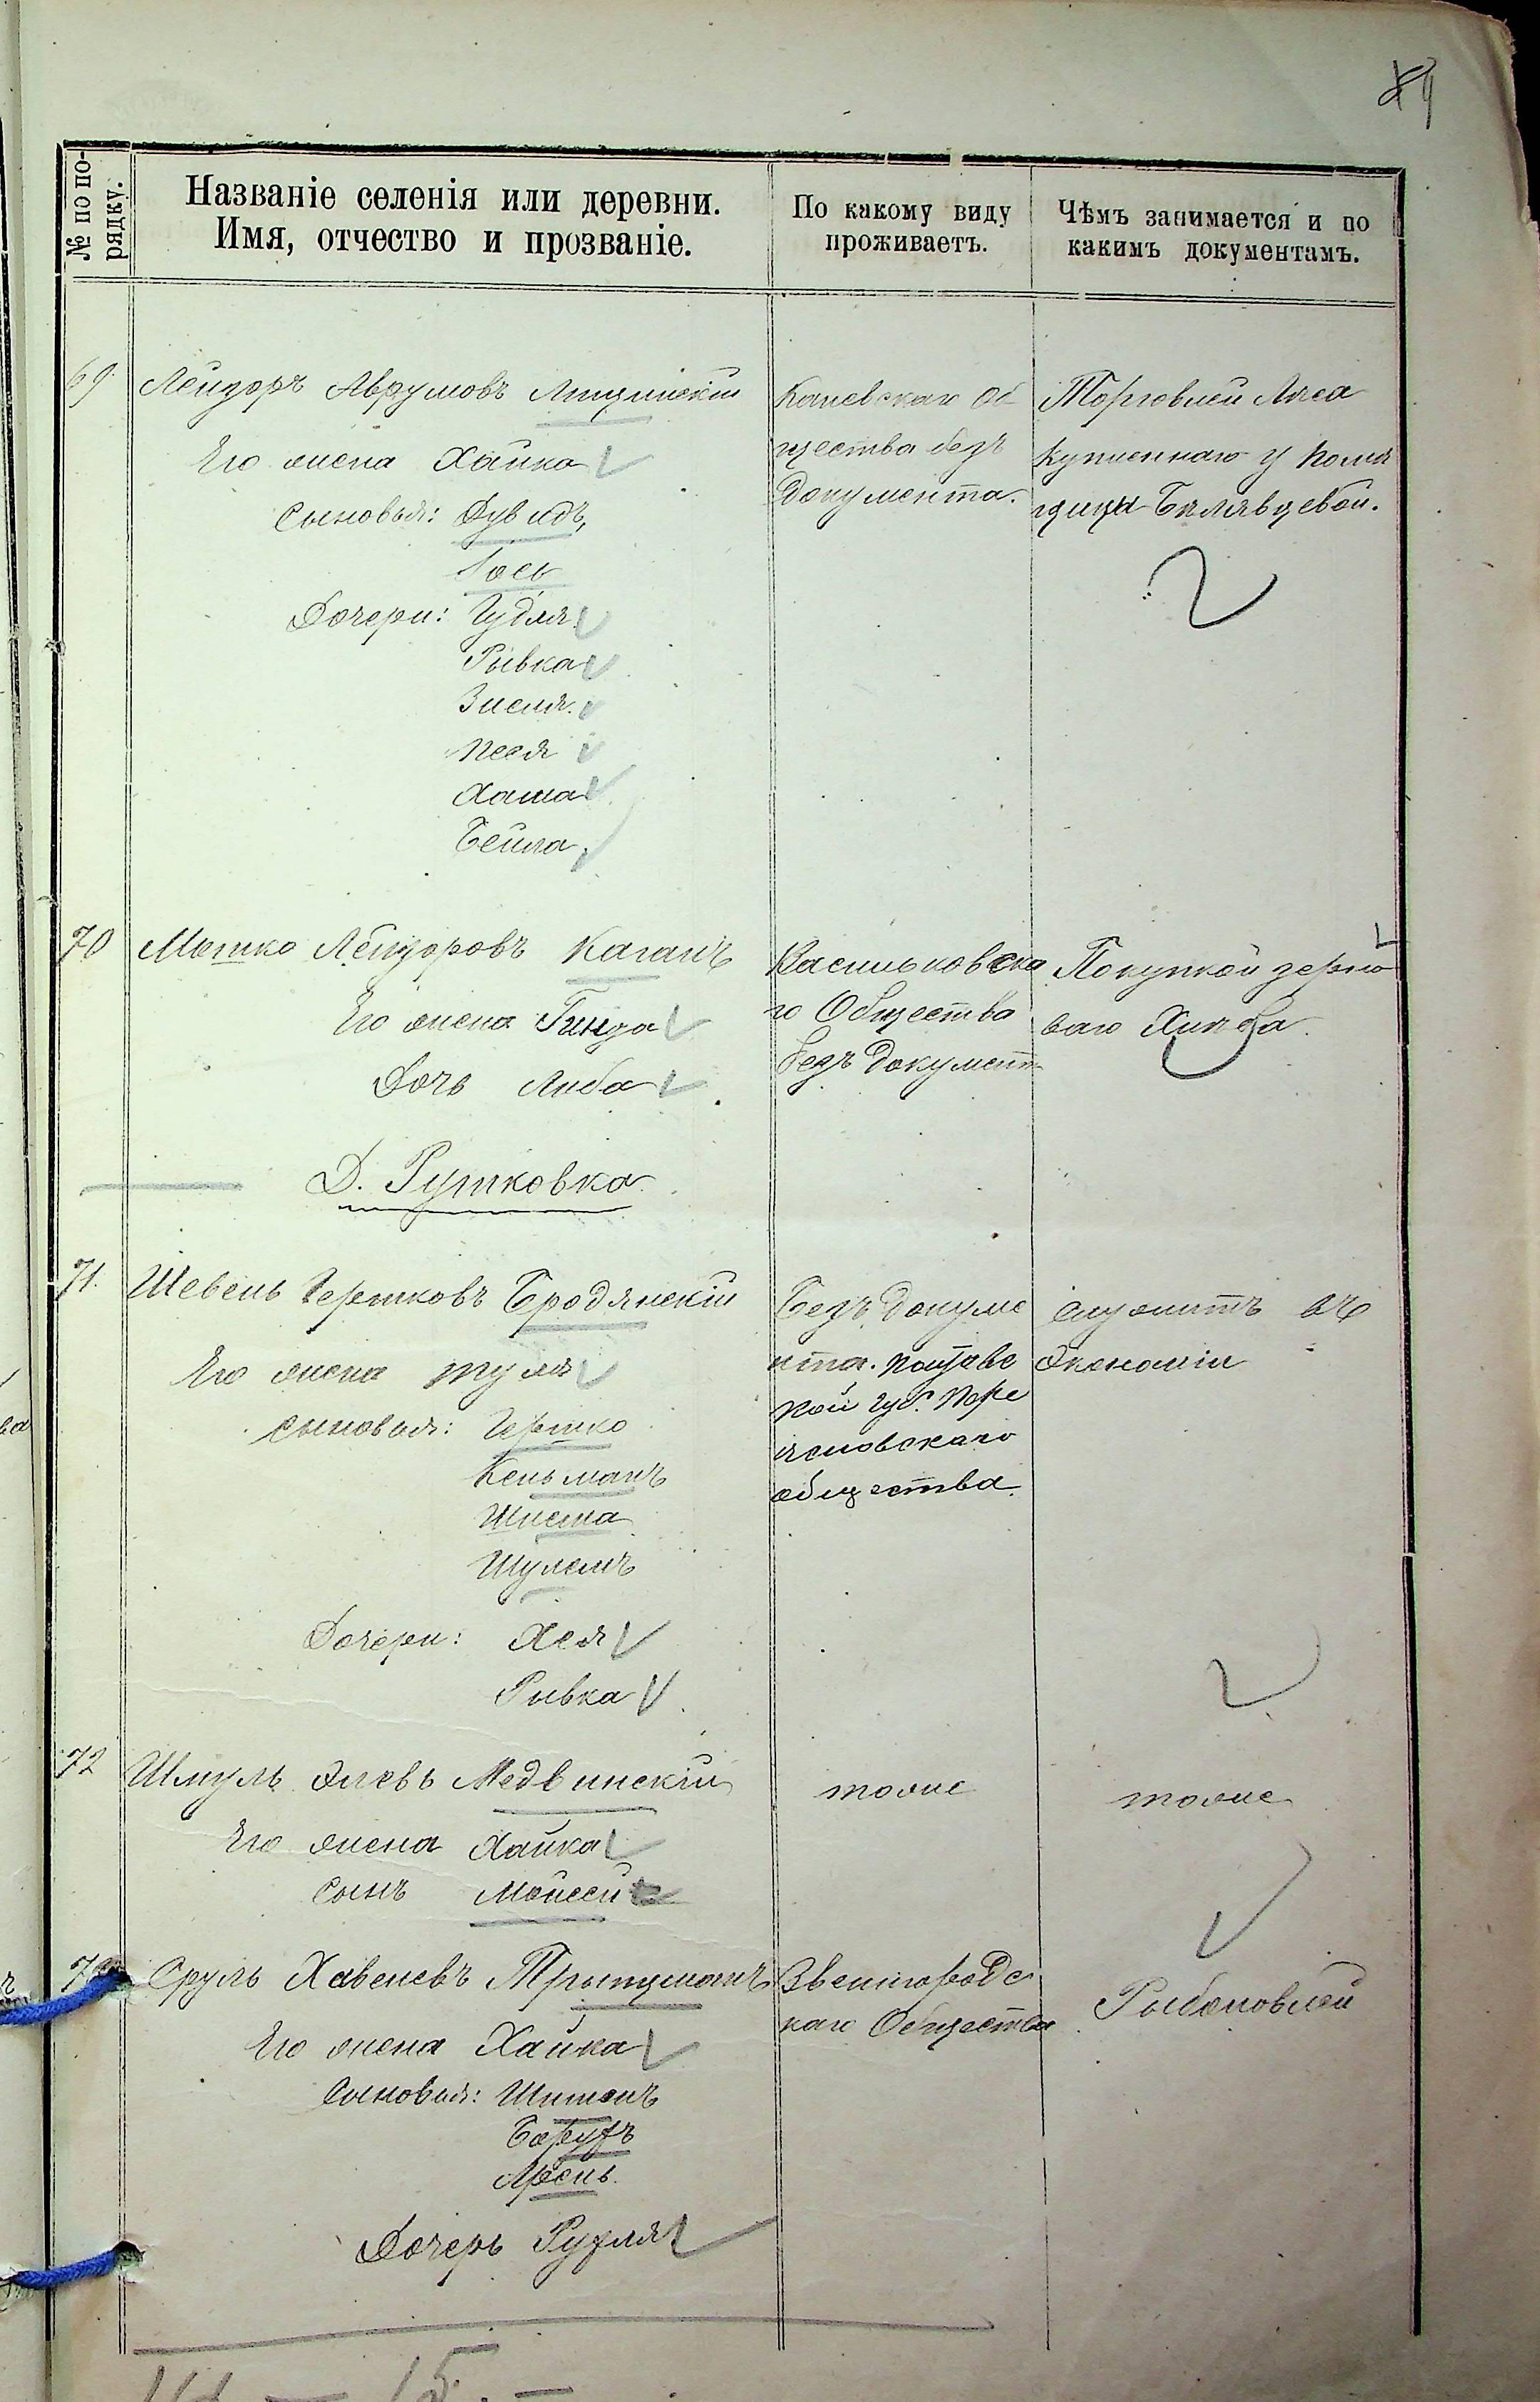 89
№ по по-
рядку.
Названіе селенія или деревни.
Имя, отчество и прозваніе.
По какому виду
проживаетъ.
Чѣмъ занимается и по
какимъ документамъ.
69 Лейзоръ Аврумовъ
Его жена Хайка
Сыновья: Дувидъ,
Іось
Дочери: Гудля
Рывка
Зиеля.
Песя
Хаша
Бейла.
Каневскаго Об
щества безъ
документа.
Торговлей Лѣса
купленнаго у поме
щицы Билявцевой.
70 Мошко Лейзоровъ Каганъ
Его жена Гинда
Дочь Люба
Васильковска
го Общества
безъ документ
Покупкой зерно
ваго Хлѣба.
Д. Рутковка
71. Шевель Гершковъ Бродянскій
Его жена
Сыновья: Гершко
Кельманъ
Шлема
Шулемъ
Дочери: Хая
Рывка
Безъ докуме
нта. Полтавс
кой губ. Пере
яславскаго
общества.
служитъ въ
экономіи
72 Шмуль Элевъ Медвинскій
Его жена Хайка
Сынъ Мойсей
тоже
тоже
73 Сруль
Его жена Хайка
Сыновья: Шимонъ
Борухъ
Дочерь Рухля
Звенигородс
каго Общества
Рыболовлей
15. —